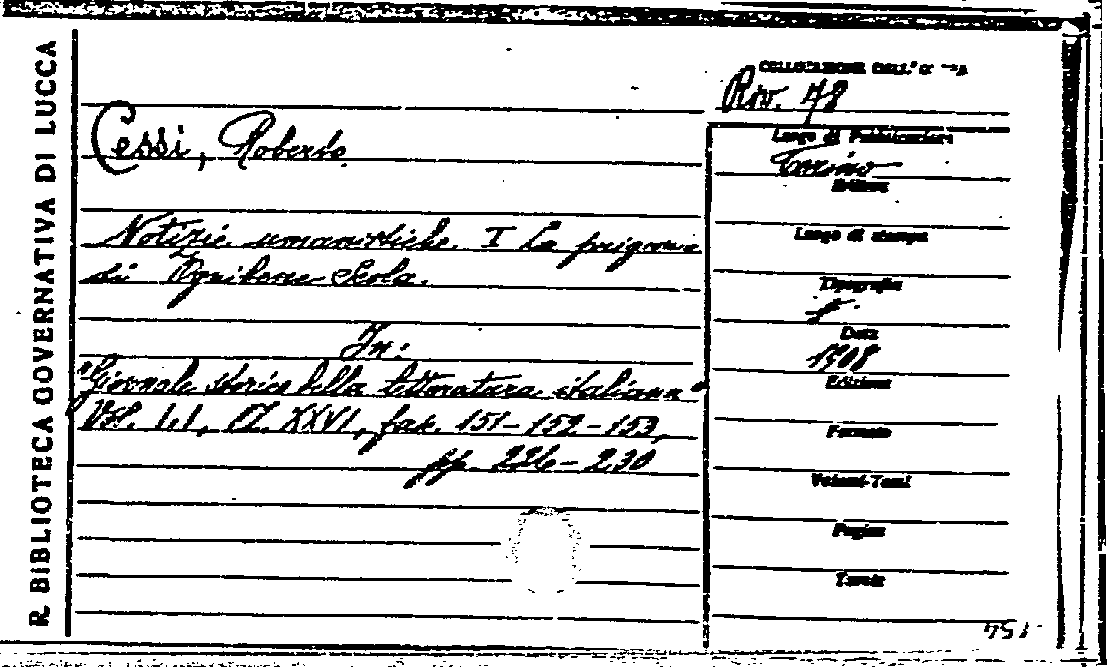 R. BIBLIOTECA GOVERNATIVA DI LUCCA
COLLOCAZIONE DELL'
Riv. 48
Cessi, Roberto
Notizie umanistiche. I La prigonia
di Ognibene Scola.
In:
"Giornale storico della letteratura italiana"
Vol. LI, XXVI, fasc. 151-152-153,
pp 226-230
Luogo di Pubblicazione
Torino
Editore
Luogo di stampa
Tipografia
Data
1908
Edizione
Formato
Volumi-Tomi
Pagine
Tavole